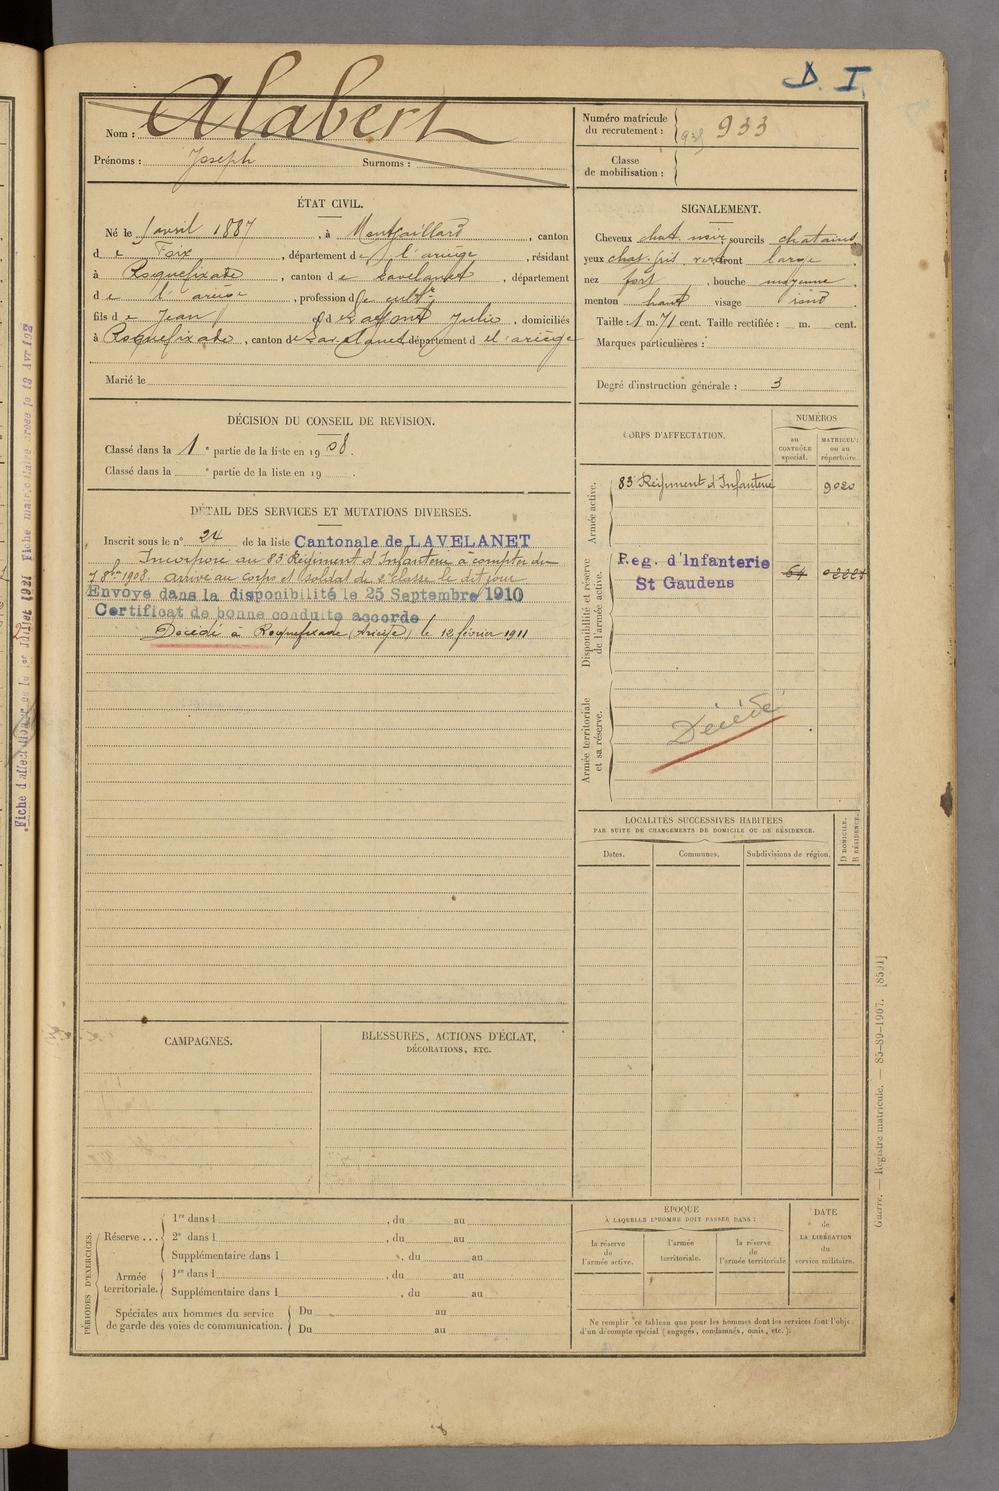 D. I.
Nom : Alabert
Prénoms : Joseph Surnoms :
Numéro matricule
du recrutement : 933
Classe
de mobilisation :
ÉTAT CIVIL.
Né le 1 avril 1887, à Montgaillard, canton
de Foix, département de l'ariège, résidant
à Roquefixade, canton de Lavelanet, département
de l'ariège, profession de cultr
fils de Jean et de Julie, domiciliés
à Roquefixade, canton de Lavelanet département d el'ariège
Marié le
SIGNALEMENT.
Cheveux chat. noir sourcils chatains
yeux chat. gris front large
nez fort, bouche moyenne
menton haut visage rond
Taille : 1 m. 71 cent. Taille rectifiée : m. cent.
Marques particulières :
Degré d'instruction générale : 3
DÉCISION DU CONSEIL DE REVISION.
Classé dans la 1e partie de la liste en 1908.
Classé dans la e partie de la liste en 19 .
DÉTAIL DES SERVICES ET MUTATIONS DIVERSES.
Inscrit sous le n° 24 de la liste Cantonale de LAVELANET
Incorporé au 83e Régiment d'Infanterie à compter du
7 8bre 1908. arrivé au corps et soldat de 2e classe le dit jour
Envoyé dans la disponibilité le 25 Septembre 1910
Certificat de bonne conduite accordé
Décédé à Roquefixade (Ariège) le 12 février 1911
CORPS D'AFFECTATION.
NUMÉROS
au
CONTRÔLE
spécial.
MATRICUL:
ou au
répertoire.
Armée active.
83e Régiment d'Infanterie 9020
Disponibilité et réserve
de l'armée active.
Reg. d'Infanterie 64
St Gaudens
Armée territoriale
et sa réserve.
Décédé
LOCALITÉS SUCCESSIVES HABITÉES
PAR SUITE DE CHANGEMENTS DE DOMICILE OU DE RÉSIDENCE.
Dates.
Communes.
Subdivisions de région.
D DOMICILE.
R RÉSIDENCE.
CAMPAGNES.
BLESSURES, ACTIONS D'ÉCLAT,
DÉCORATIONS, ETC.
PÉRIODES D'EXERCICES.
Réserve ...
1re dans l , du au
2e dans l , du au
Supplémentaire dans l , du au
Armée
territoriale.
1re dans l , du au
Supplémentaire dans l , du au
Spéciales aux hommes du service
de garde des voies de communication.
Du au
Du au
ÉPOQUE
À LAQUELLE L'HOMME DOIT PASSER DANS :
la réserve
de
l'armée active.
l'armée
territoriale.
la réserve
de
l'armée territoriale
DATE
de
LA LIBÉRATION
du
service militaire.
Ne remplir ce tableau que pour les hommes dont les services font l'obje
d'un décompte spécial (engagés, condamnés, omis, etc.).
Guerre. — Registre matricule. — 85-89-1907. [8591]